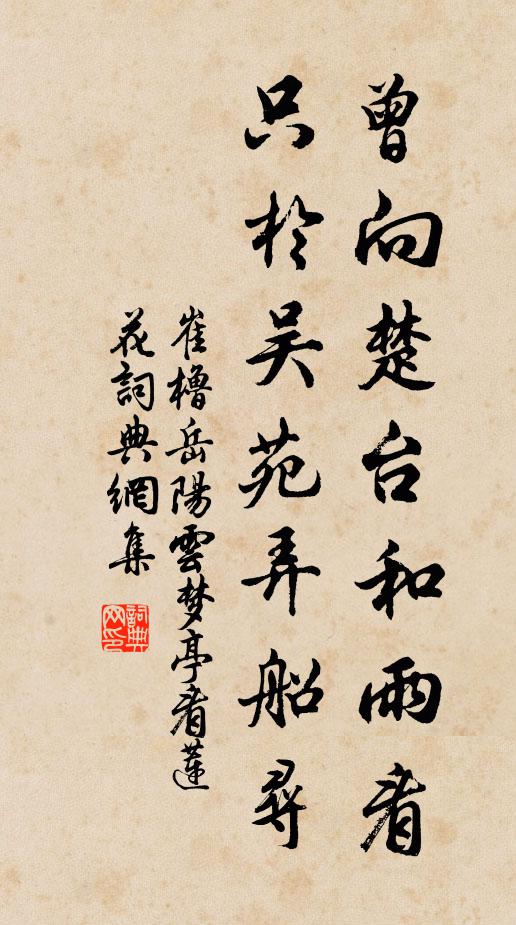 曾向楚台和雨看
只於吴苑弄船尋
崔櫓岳陽雲梦亭看蓮
花詞典網集
詞典
网印